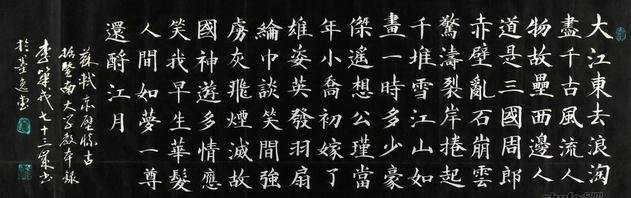 大江東去浪淘
盡千古風流人
物故壘西邊人
道是三國周郎
赤壁亂石崩雲
驚濤裂岸捲起
千堆雪江山如
畫一時多少豪
傑遙想公瑾當
年小喬初嫁了
雄姿英發羽扇
綸巾談笑間強
虜灰飛煙滅故
國神遊多情應
笑我早生華髮
人間如夢一尊
還酹江月
蘇軾赤壁懷古
暨南大學教本錄
李戎七十三歲書
於墨